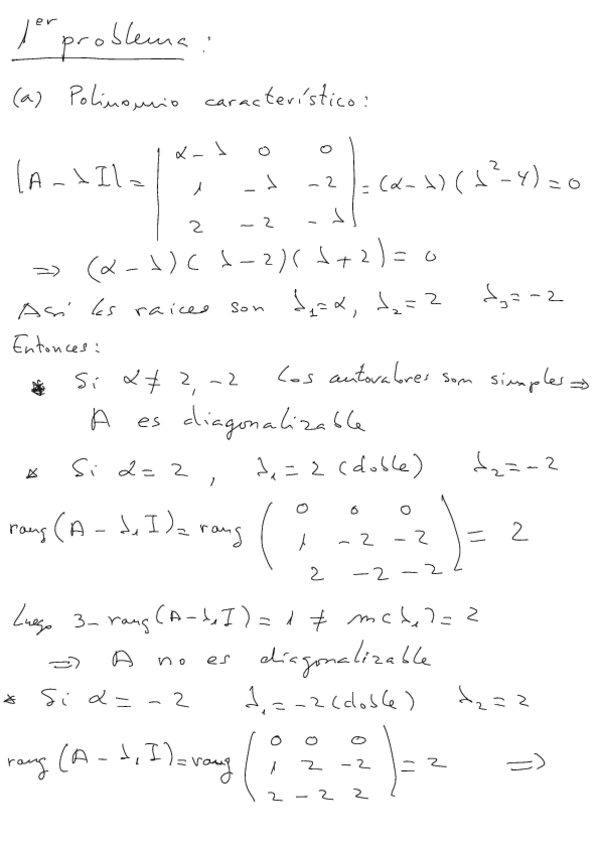 1er problema:
(a) Polinomio característico:
|A - λI| = | α-λ 0 0 | = (α-λ)(λ²-4) = 0
| 1 -λ -2 |
| 2 -2 -λ |
⇒ (α-λ)(λ-2)(λ+2) = 0
Así las raíces son λ₁=α, λ₂=2 λ₃=-2
Entonces:
* Si α≠ 2, -2 los autovalores son simples ⇒
A es diagonalizable
* Si α=2, λ₁=2 (doble) λ₂=-2
rang(A - λ₁I) = rang ( 0 0 0 ) = 2
( 1 -2 -2 )
( 2 -2 -2 )
Luego 3-rang(A-λ₁I) = 1 ≠ m(λ₁) = 2
⇒ A no es diagonalizable
* Si α = -2 λ₁=-2 (doble) λ₂=2
rang (A - λ₁I) = rang ( 0 0 0 ) = 2 ⇒
( 1 2 -2 )
( 2 -2 2 )